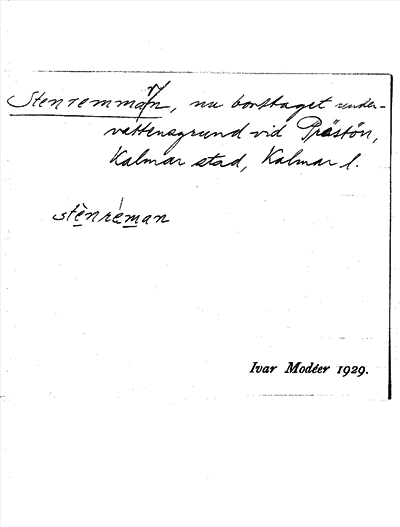 Stenremman, nu borttaget under-
vattensgrund vid Prästön,
Kalmar stad, Kalmar l.
stènréman
Ivar Modéer 1929.